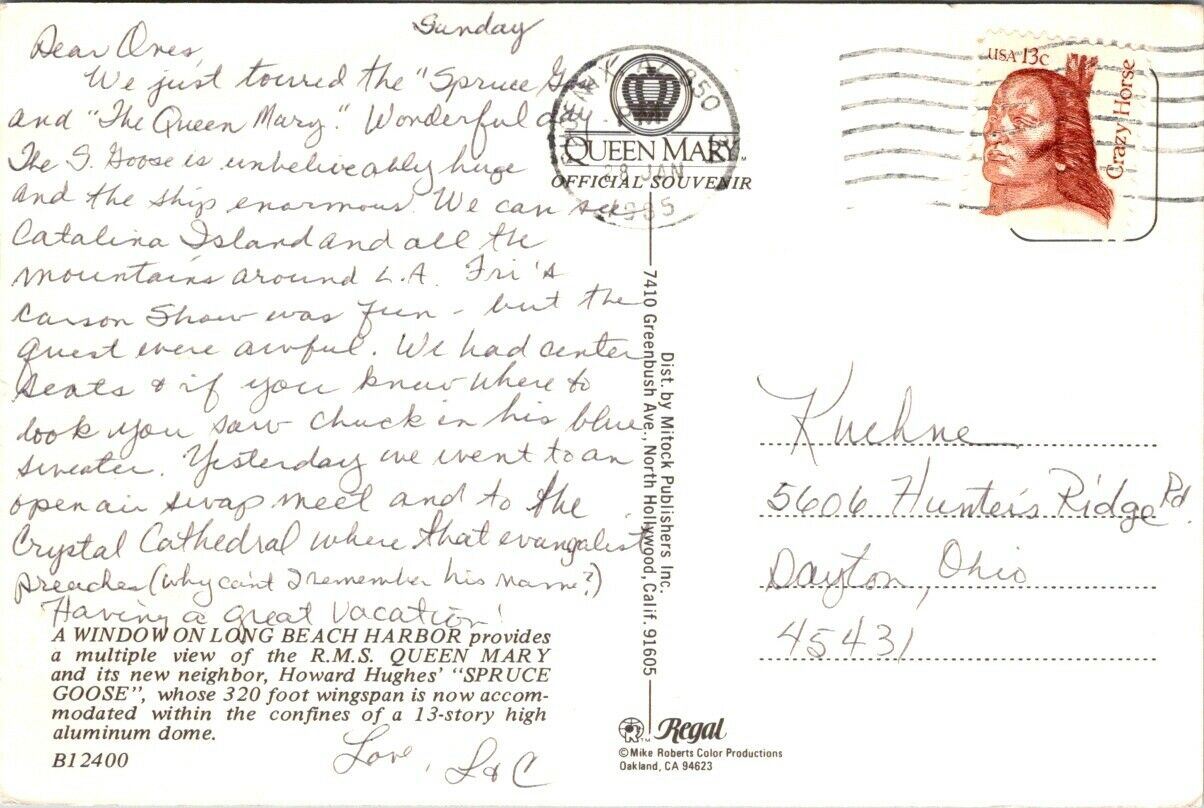 Sunday
Dear Ones,
We just toured the "Spruce G
and "The Queen Mary". Wonderful day.
The S. Goose is unbeliveably huge
and the ship enormous. We can see
Catalina Island and all the
mountains around L.A. Fri's
Carson Show was fun - but the
guest were awful. We had center
seats & if you knew where to
look you saw Chuck in his blue
sweater. Yesterday we went to an
open air swap meet and to the
Crystal Cathedral where that evangalist
preaches (why can't I remember his name?)
Having a great vacation!
A WINDOW ON LONG BEACH HARBOR provides
a multiple view of the R.M.S. QUEEN MARY
and its new neighbor, Howard Hughes' "SPRUCE
GOOSE", whose 320 foot wingspan is now accom-
modated within the confines of a 13-story high
aluminum dome.
B12400
Love, L & C
QUEEN MARY
OFFICIAL SOUVENIR
850
28 JAN
Dist. by Mitock Publishers Inc.
7410 Greenbush Ave., North Hollywood, Calif. 91605
Regal
© Mike Roberts Color Productions
Oakland, CA 94623
USA 13c
Crazy Horse
Kuehne
5606 Hunters Ridge Rd.
Dayton, Ohio
45431